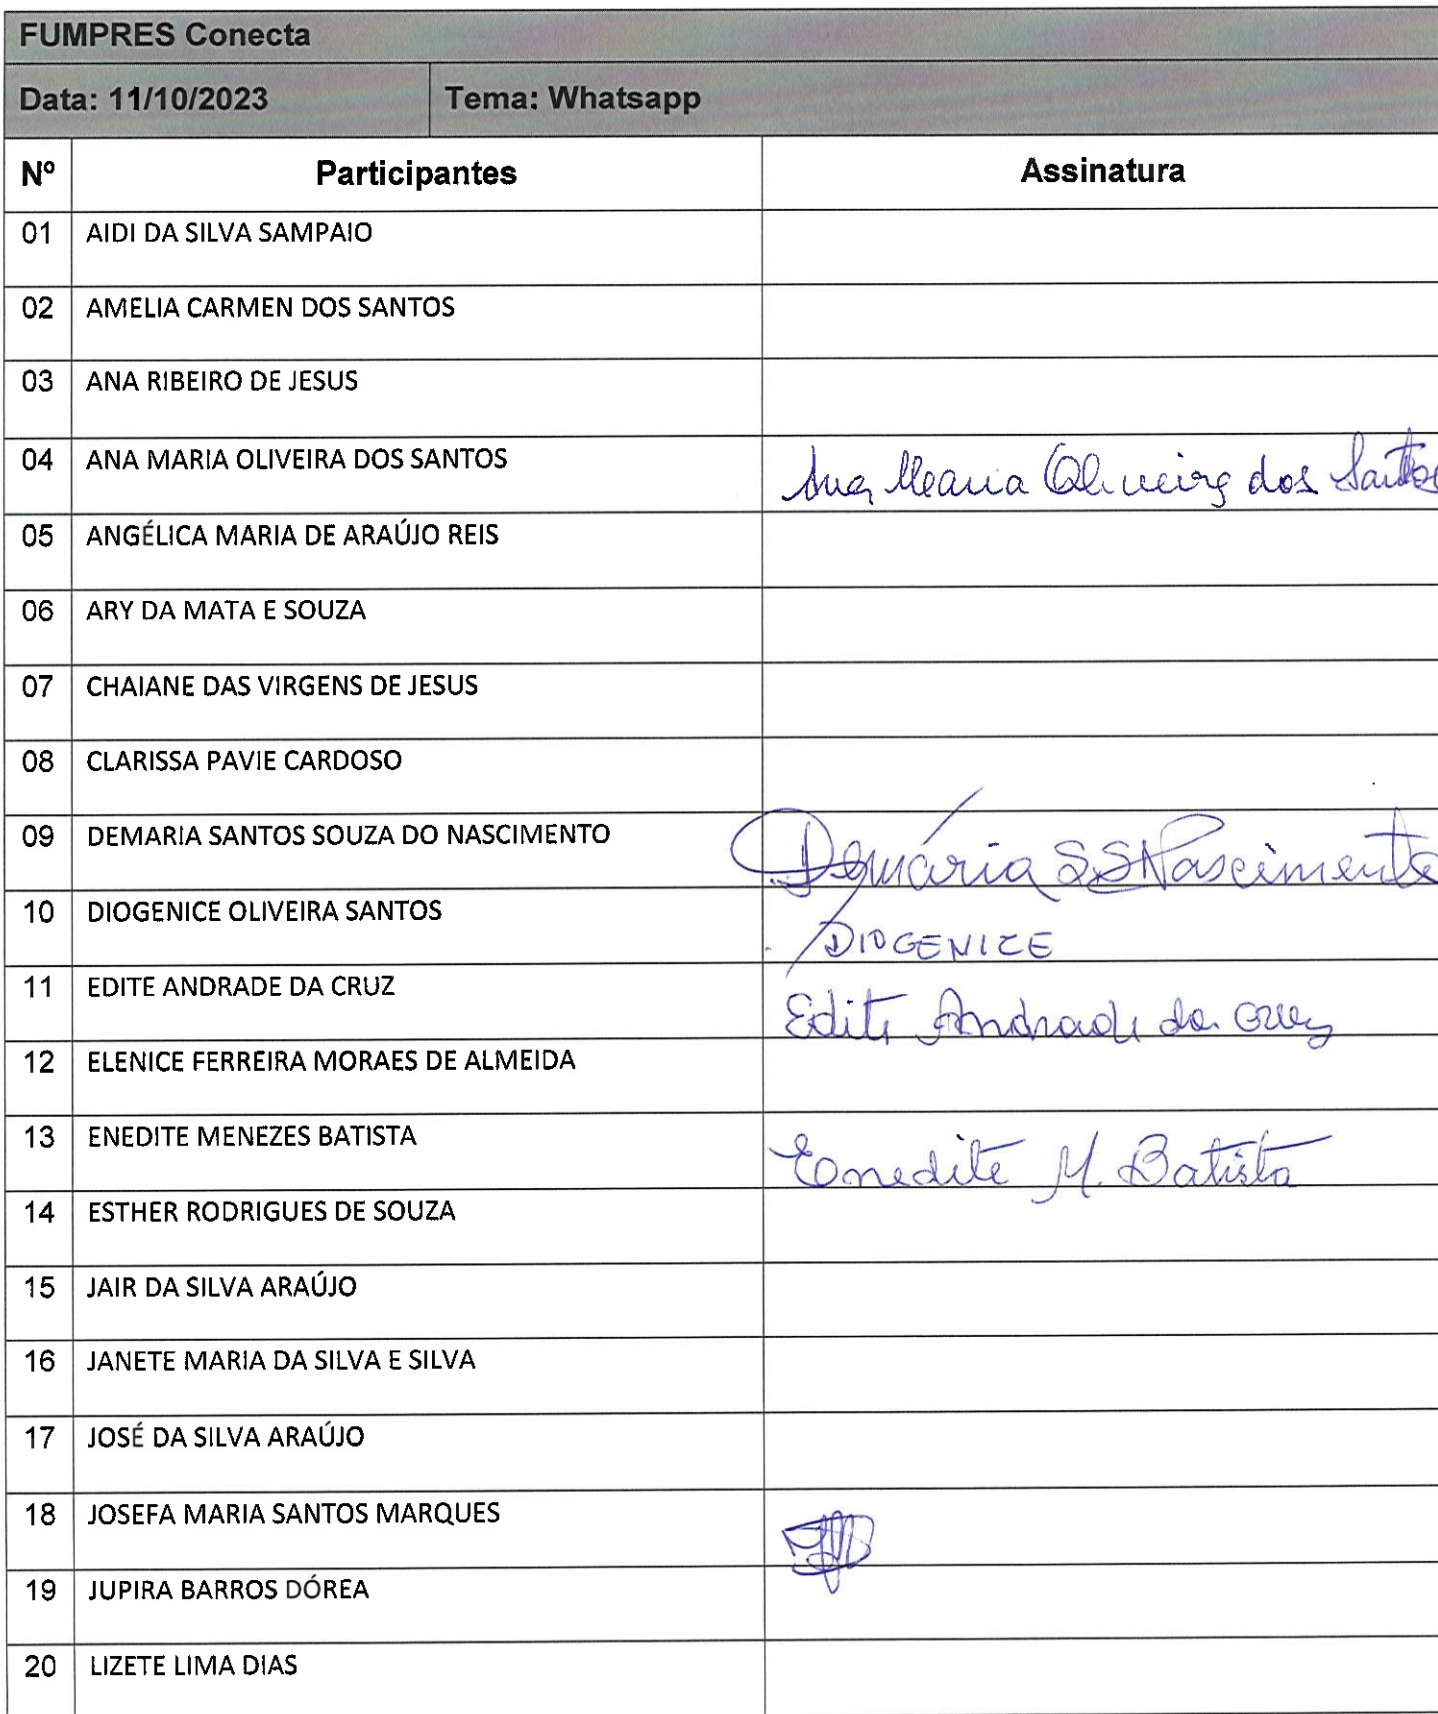 FUMPRES Conecta
Data: 11/10/2023 Tema: Whatsapp
Nº Participantes Assinatura
01 AIDI DA SILVA SAMPAIO
02 AMELIA CARMEN DOS SANTOS
03 ANA RIBEIRO DE JESUS
04 ANA MARIA OLIVEIRA DOS SANTOS Ana Maria Oliveira dos Santos
05 ANGÉLICA MARIA DE ARAÚJO REIS
06 ARY DA MATA E SOUZA
07 CHAIANE DAS VIRGENS DE JESUS
08 CLARISSA PAVIE CARDOSO
09 DEMARIA SANTOS SOUZA DO NASCIMENTO Demária S.S Nascimento
10 DIOGENICE OLIVEIRA SANTOS DIOGENICE
11 EDITE ANDRADE DA CRUZ Edite Andrade da Cruz
12 ELENICE FERREIRA MORAES DE ALMEIDA
13 ENEDITE MENEZES BATISTA Enedite M. Batista
14 ESTHER RODRIGUES DE SOUZA
15 JAIR DA SILVA ARAÚJO
16 JANETE MARIA DA SILVA E SILVA
17 JOSÉ DA SILVA ARAÚJO
18 JOSEFA MARIA SANTOS MARQUES
19 JUPIRA BARROS DÓREA
20 LIZETE LIMA DIAS